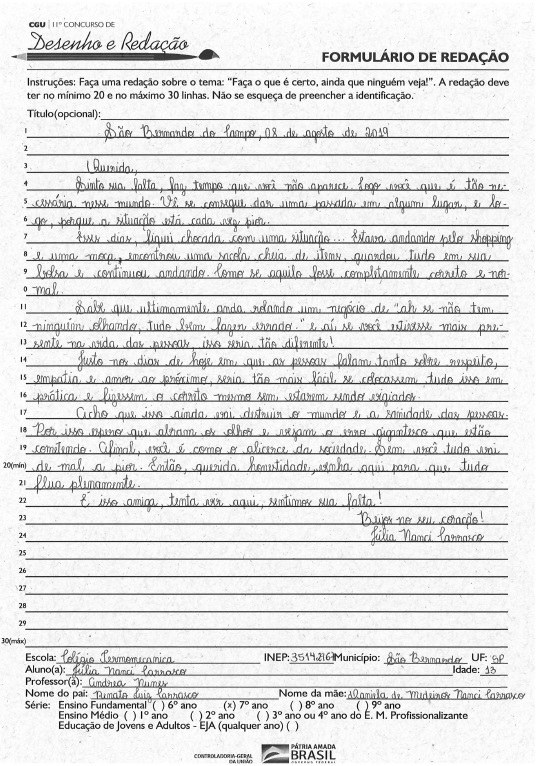 CGU | 11º CONCURSO DE
Desenho e Redação
FORMULÁRIO DE REDAÇÃO
Instruções: Faça uma redação sobre o tema: "Faça o que é certo, ainda que ninguém veja!". A redação deve
ter no mínimo 20 e no máximo 30 linhas. Não se esqueça de preencher a identificação.
Título(opcional):
1 São Bernardo do Campo, 08 de agosto de 2019
2
3 Querida,
4 Sinto sua falta, faz tempo que você não aparece. Logo você que é tão ne-
5 cessária nesse mundo. Vê se consegue dar uma passada em algum lugar, e lo-
6 go, porque a situação está cada vez pior.
7 Esses dias, fiquei chocada com uma situação... Estava andando pelo shopping
8 e uma moça, encontrou uma sacola cheia de itens, guardou tudo em sua
9 bolsa e continuou andando. Como se aquilo fosse completamente correto e nor-
0 mal.
11 Sabe que ultimamente anda rolando um negócio de "ah se não tem
12 ninguém olhando, tudo bem fazer errado." e aí se você estivesse mais pre-
13 sente na vida das pessoas, isso seria tão diferente!
14 Justo nos dias de hoje em que as pessoas falam tanto sobre respeito,
15 empatia e amor ao próximo, seria tão mais fácil se colocassem tudo isso em
16 prática e fizessem o correto mesmo sem estarem sendo vigiados.
17 Acho que isso ainda vai destruir o mundo e a sanidade das pessoas.
18 Por isso espero que abram os olhos e vejam o erro gigantesco que estão
19 cometendo. Afinal, você é como o alicerce da sociedade. Sem você tudo vai
20(mín) de mal a pior. Então, querida honestidade, venha aqui para que tudo
21 flua plenamente.
22 É isso amiga, tenta vir aqui, sentimos sua falta!
23 Beijos no seu coração!
24 Júlia Nanci Carrasco
25
26
27
28
29
30(máx)
Escola: Colégio Termomecanica INEP: Município: São Bernardo UF: SP
Aluno(a): Júlia Nanci Carrasco Idade: 13
Professor(a): Andrea Nunes
Nome do pai: Renato Luiz Carrasco Nome da mãe: Daniela de Medeiros Nanci Carrasco
Série: Ensino Fundamental ( ) 6º ano (x) 7º ano ( ) 8º ano ( ) 9º ano
Ensino Médio ( ) 1º ano ( ) 2º ano ( ) 3º ano ou 4º ano do E. M. Profissionalizante
Educação de Jovens e Adultos - EJA (qualquer ano) ( )
CONTROLADORIA-GERAL
DA UNIÃO
PÁTRIA AMADA
BRASIL
GOVERNO FEDERAL